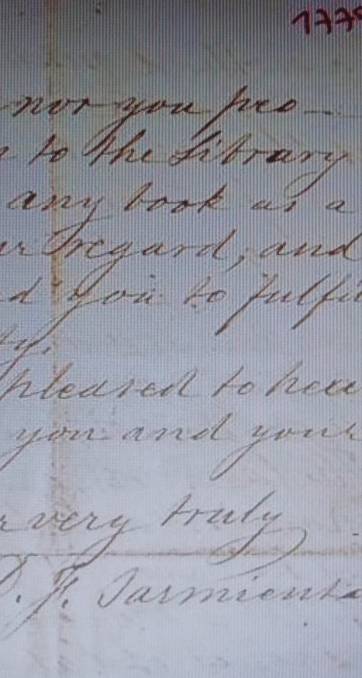 1778
nor you pro-
to the Library
any book as a
regard, and
you to fulfi
pleased to hea
you and your
very truly
D. F. Sarmiento